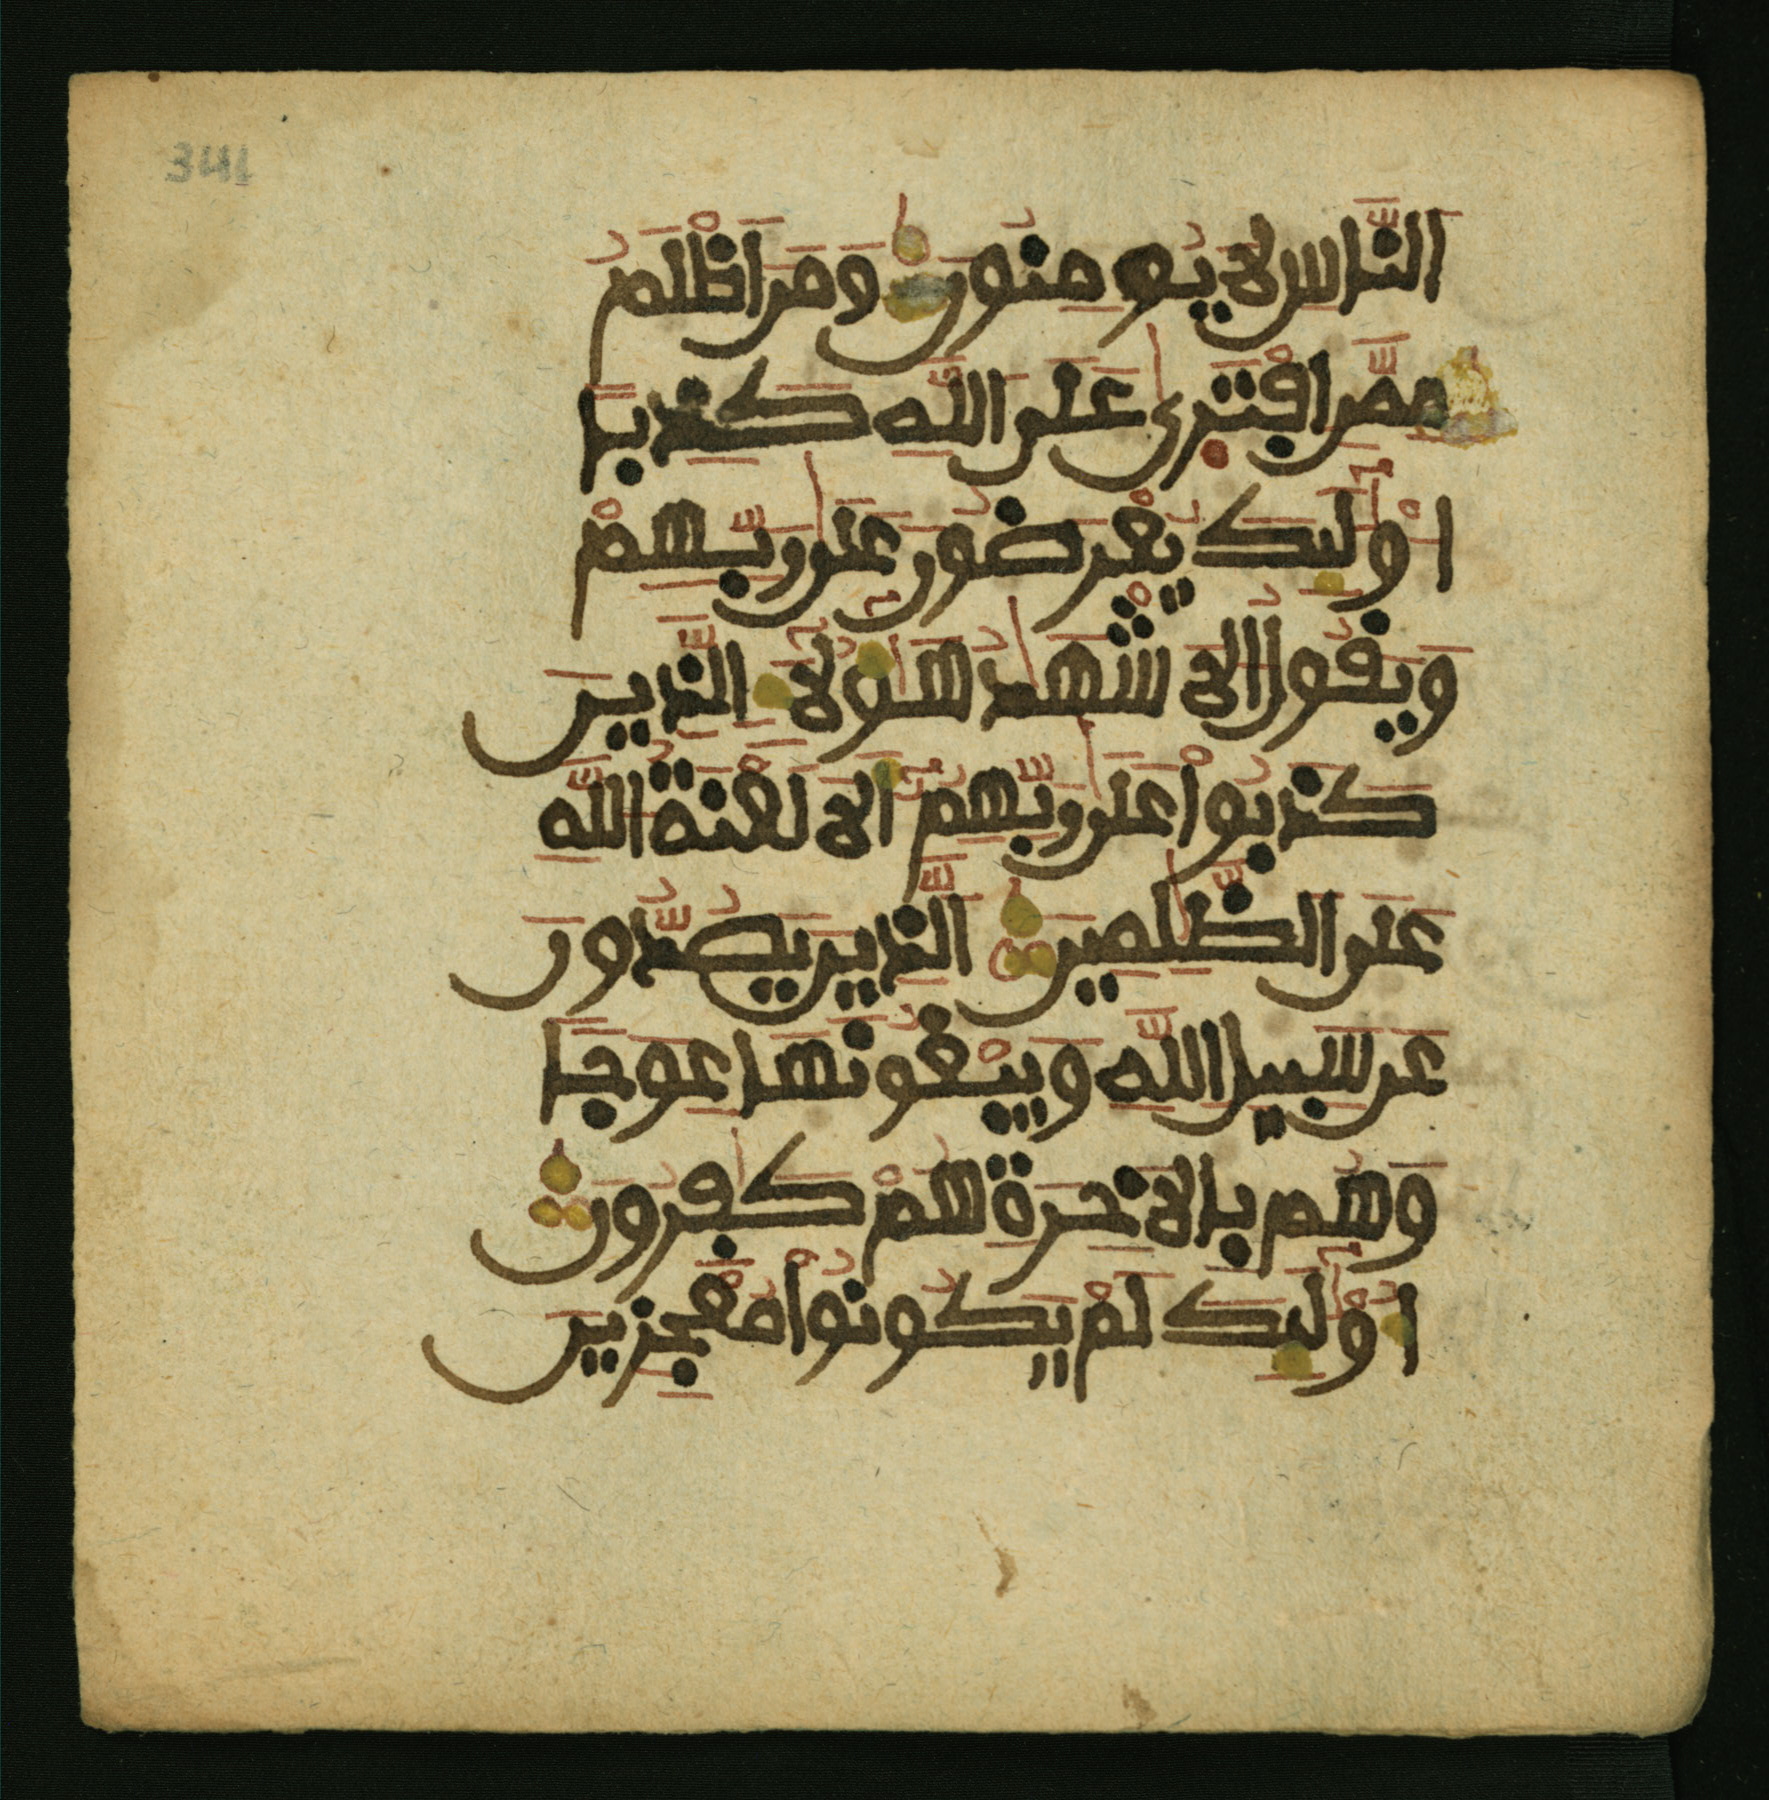 341
النَّاسِ لَا يُومِنُونَ وَمَنَ اَظْلَمُ
مِمَّنِ افْتَرَىٰ عَلَى اللَّهِ كَذِبًا
اُوْلَٰئِكَ يُعْرَضُونَ عَلَىٰ رَبِّهِمْ
وَيَقُولُ الَاشْهَٰدُ هَٰؤُلَاءِ الَّذِينَ
كَذَبُواْ عَلَىٰ رَبِّهِمُ أَلَا لَعْنَةُ اللَّهِ
عَلَى الظَّٰلِمِينَ الَّذِينَ يَصُدُّونَ
عَن سَبِيلِ اللَّهِ وَيَبْغُونَهَا عِوَجًا
وَهُم بِالَاخِرَةِ هُمْ كَٰفِرُونَ
اُوْلَٰئِكَ لَمْ يَكُونُواْ مُعْجِزِينَ